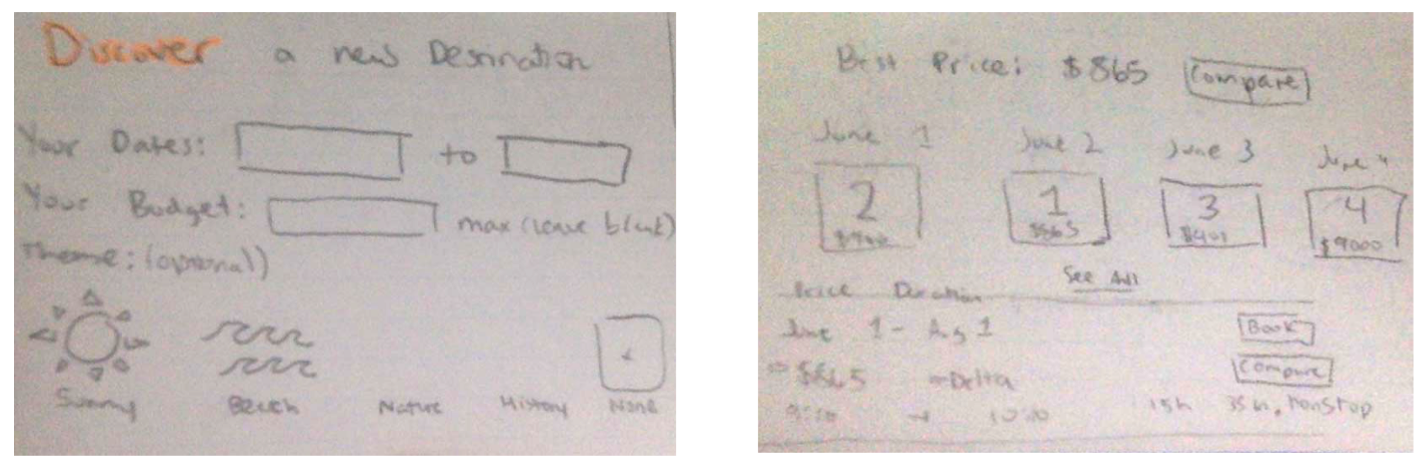 Discover a new Destination
Your Dates: to
Your Budget: max (leave blank)
Theme: (optional)
Sunny Beach Nature History None
Best Price: $865 Compare
June 1 June 2 June 3 June 4
2 1 3 4
$865 $9000
See All
Price Duration
June 1 - Aug 1 Book
$865 Delta Compare
15h 35m, nonstop